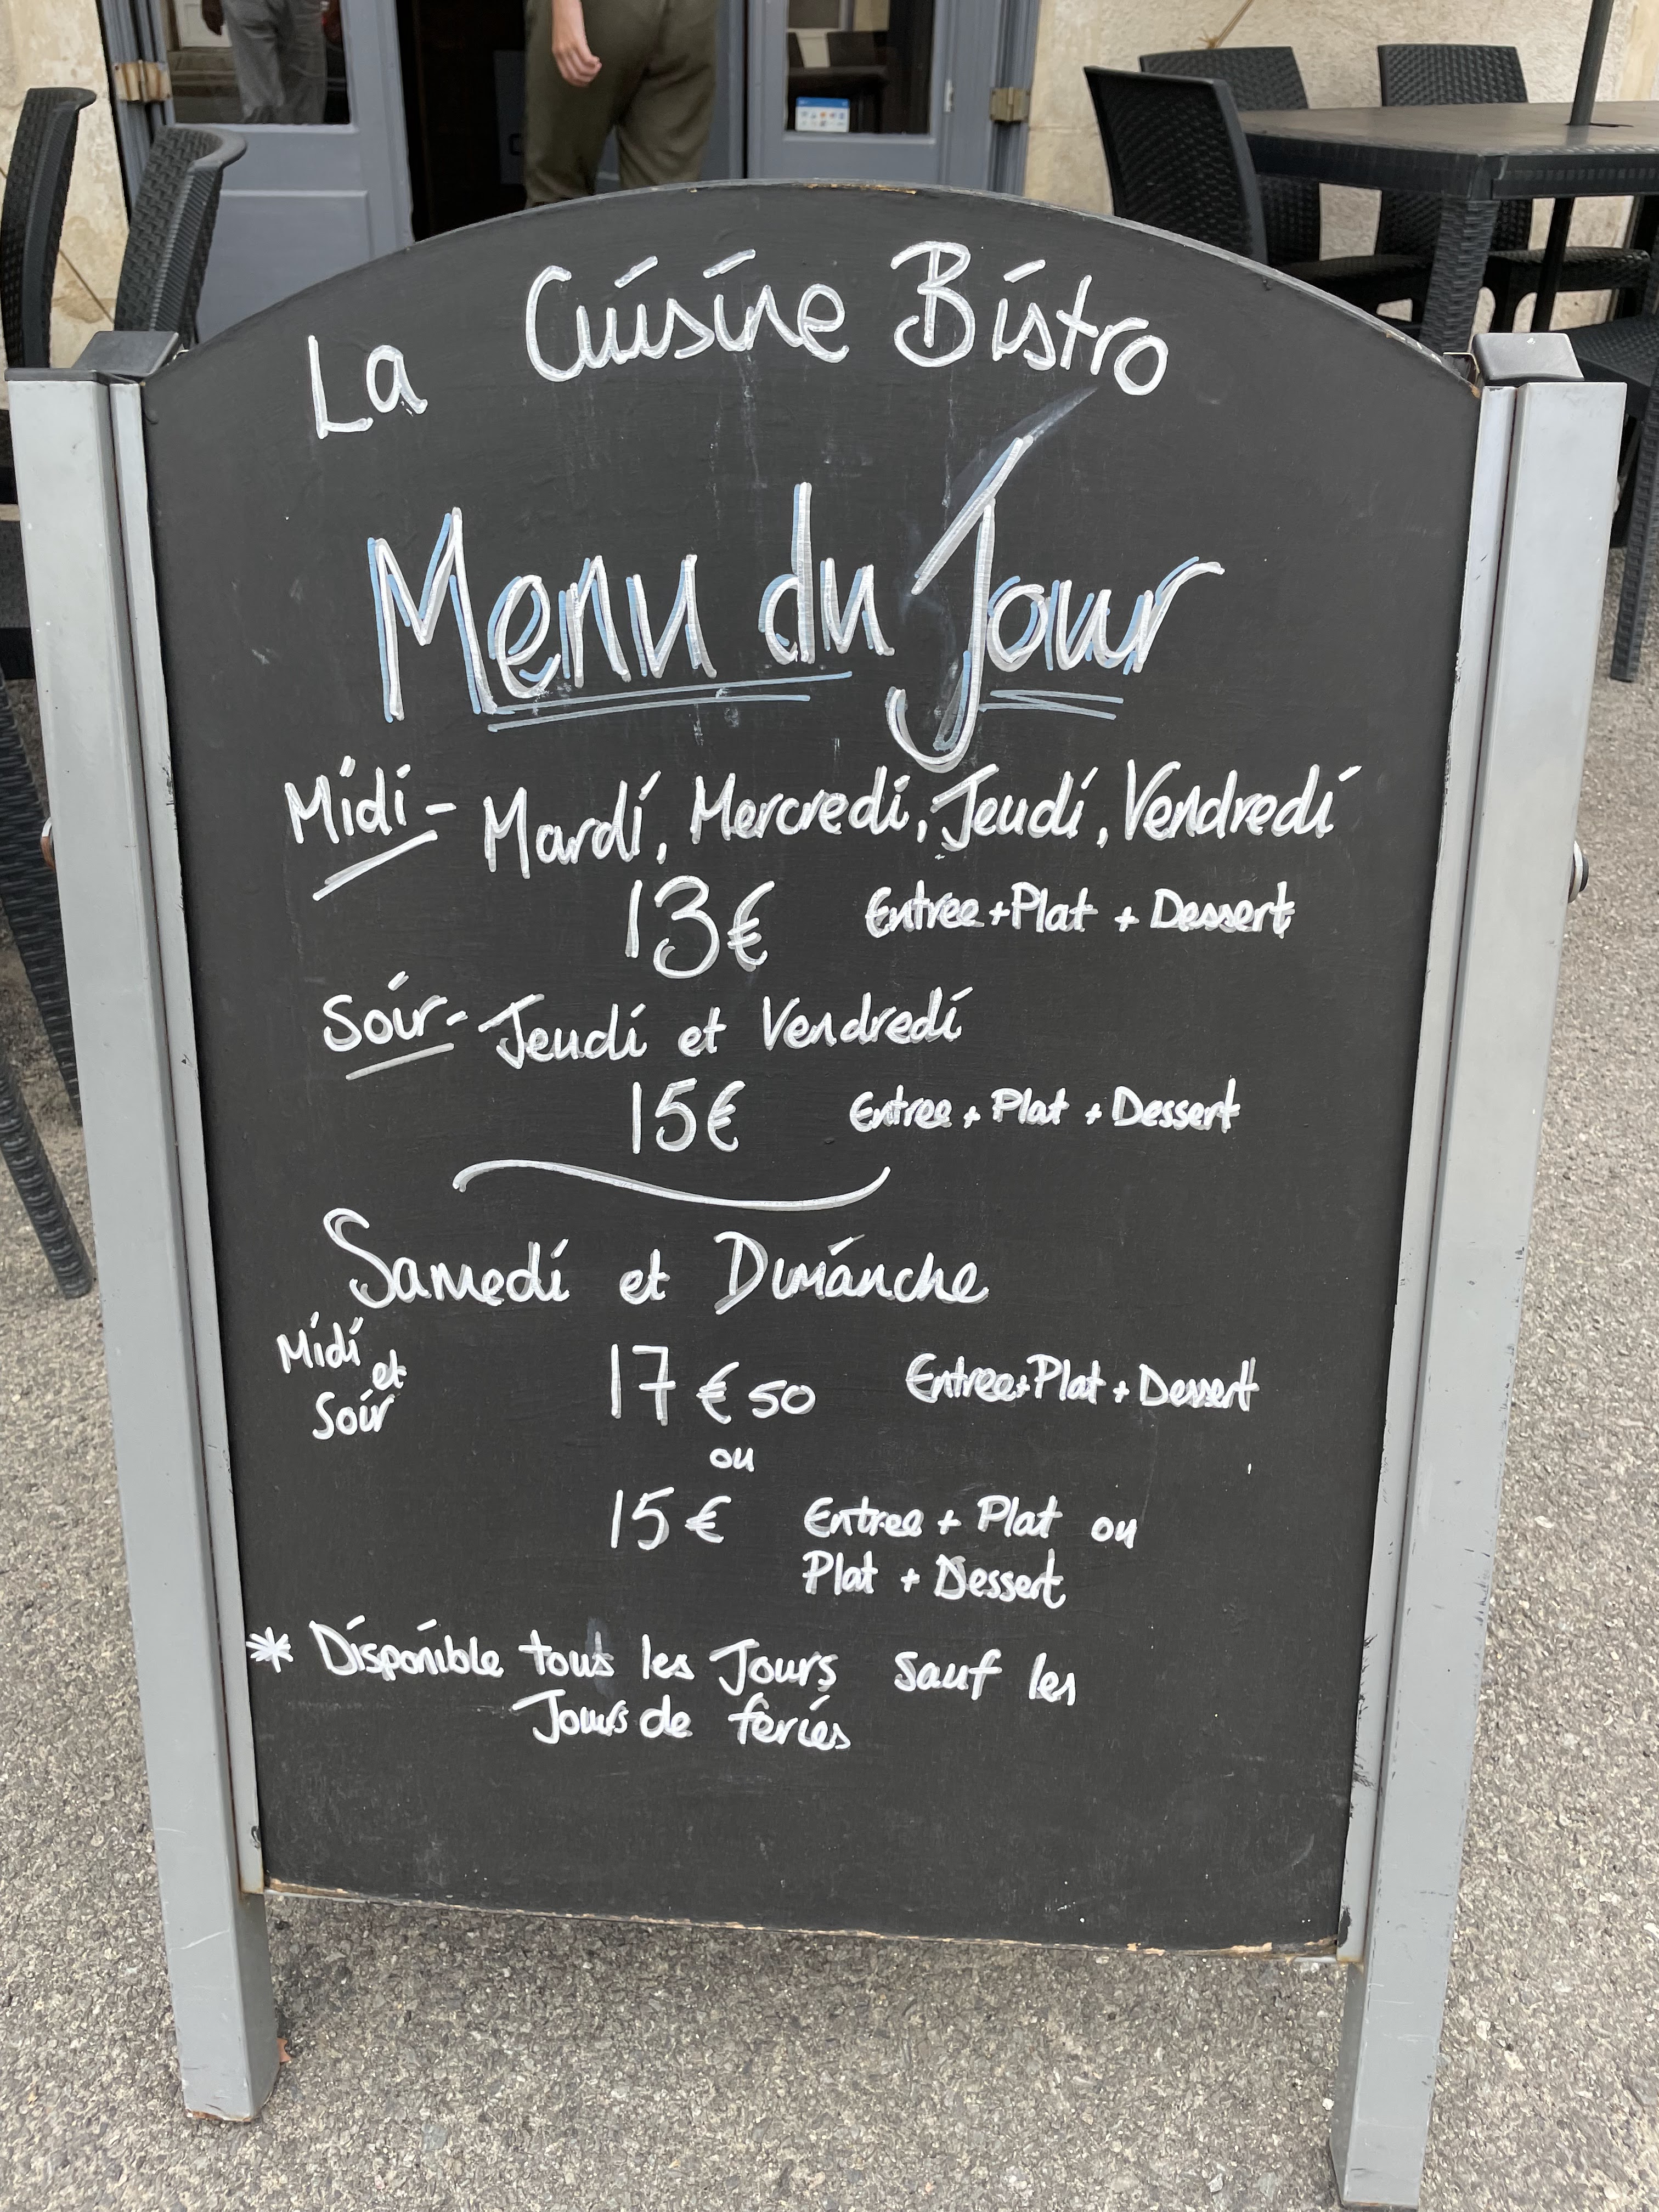 La Cuisine Bistro
Menu du Jour
Midi - Mardi, Mercredi, Jeudi, Vendredi
13€ Entree + Plat + Dessert
Soir - Jeudi et Vendredi
15€ Entree + Plat + Dessert
Samedi et Dimanche
Midi et Soir
17€50 Entree + Plat + Dessert
ou
15€ Entree + Plat ou
Plat + Dessert
* Disponible tous les Jours sauf les
Jours de fériés